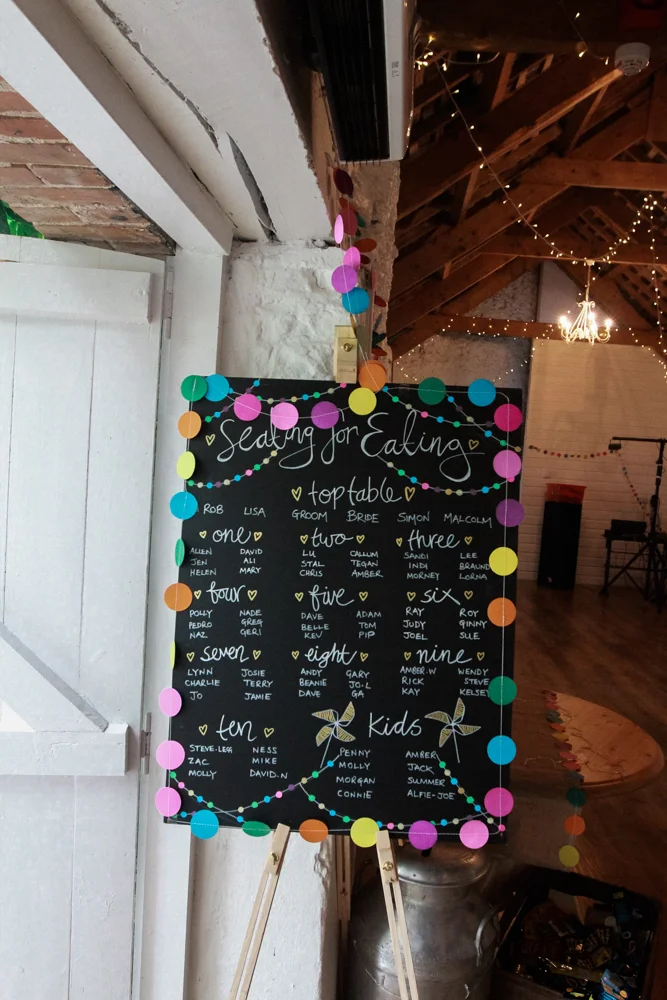 Seating for Eating
top table
ROB LISA GROOM BRIDE SIMON MALCOLM
one two three
ALLEN DAVID LU CALLUM SANDI LEE
JEN ALI STAL TEGAN INDI BRAUND
HELEN MARY CHRIS AMBER MORNEY LORNA
four five six
POLLY NADE DAVE ADAM RAY ROY
PEDRO GREG BELLE TOM JUDY GINNY
NAZ GERI KEV PIP JOEL SUE
seven eight nine
LYNN JOSIE ANDY GARY AMBER.W WENDY
CHARLIE TERRY BEANIE JO.L RICK STEVE
JO JAMIE DAVE GA KAY KELSEY
ten Kids
STEVE.LEGG NESS PENNY AMBER
ZAC MIKE MOLLY JACK
MOLLY DAVID.N MORGAN SUMMER
CONNIE ALFIE-JOE